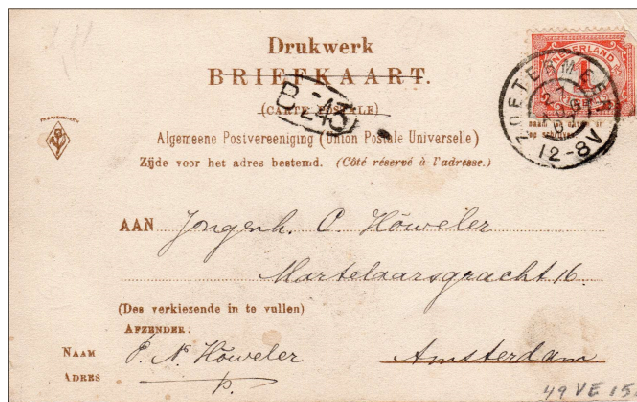 Drukwerk
BRIEFKAART.
(CARTE POSTALE)
Algemeene Postvereeniging (Union Postale Universele)
Zijde voor het adres bestemd. (Côté réservé à l'adresse.)
NEDERLAND
1
ZOETERMEER
12-8V
AAN Jongenh. C. Höweler
Martelaarsgracht 16.
(Des verkiezende in te vullen)
AFZENDER:
NAAM P. N. Höweler Amsterdam
ADRES p.
49 VE 15